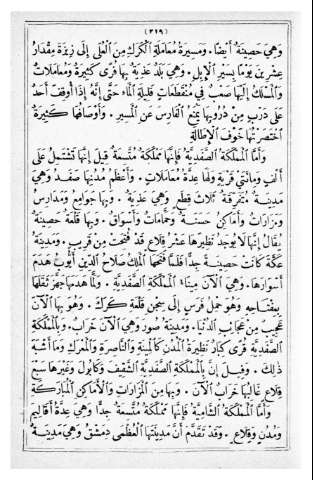 (٣١٩)
وَهِيَ حَصِينَةٌ أَيْضًا. وَمَسِيرَةُ مُعَامَلَةِ الْكَرَكِ مِنَ الْعُلَى إِلَى زِيزَةَ مِقْدَارُ
عِشْرِينَ يَوْمًا بِسَيْرِ الْإِبِلِ. وَهِيَ بَلَدٌ عَذِيَةٌ بِهَا قُرًى كَثِيرَةٌ وَمُعَامَلَاتٌ
وَالْمَسْلَكُ إِلَيْهَا صَعْبٌ فِي مُنْقَطَعَاتٍ قَلِيلَةِ الْمَاءِ حَتَّى إِنَّهُ إِذَا أُوقِفَ أَحَدٌ
عَلَى دَرْبٍ مِنْ دُرُوبِهَا يَمْنَعُ الْفَارِسَ عَنِ الْمَسِيرِ. وَأَوْصَافُهَا كَثِيرَةٌ
اخْتَصَرْتُهَا خَوْفَ الْإِطَالَةِ
وَأَمَّا الْمَمْلَكَةُ الصَّفَدِيَّةُ فَإِنَّهَا مَمْلَكَةٌ مُتَّسِعَةٌ قِيلَ إِنَّهَا تَشْتَمِلُ عَلَى
أَلْفٍ وَمِائَتَيْ قَرْيَةٍ وَلَهَا عِدَّةُ مُعَامَلَاتٍ. وَأَعْظَمُ مُدُنِهَا صَفَدُ وَهِيَ
مَدِينَةٌ مُتَفَرِّقَةٌ ثَلَاثُ قِطَعٍ وَهِيَ عَذِيَةٌ. وَبِهَا جَوَامِعُ وَمَدَارِسُ
وَمَزَارَاتٌ وَأَمَاكِنُ حَسَنَةٌ وَحَمَّامَاتٌ وَأَسْوَاقٌ. وَبِهَا قَلْعَةٌ حَصِينَةٌ
يُقَالُ إِنَّهَا لَا يُوجَدُ نَظِيرُهَا عَشْرُ قِلَاعٍ قَدْ فُتِحَتْ مِنْ قَرِيبٍ. وَمَدِينَةُ
عَكَّةَ كَانَتْ حَصِينَةً جِدًّا فَلَمَّا فَتَحَهَا الْمَلِكُ صَلَاحُ الدِّينِ أَيُّوبُ هَدَمَ
أَسْوَارَهَا. وَهِيَ الْآنَ مِينَاءُ الْمَمْلَكَةِ الصَّفَدِيَّةِ. وَلَمَّا هَدَمَهَا جَهَّزَ ثِقَلَهَا
بِمِفْتَاحِهِ وَهُوَ حِمْلُ فَرَسٍ إِلَى سِجْنِ قَلْعَةِ كَرَكَ. وَهُوَ بِهَا الْآنَ
عَجِيبٌ مِنْ عَجَائِبِ الدُّنْيَا. وَمَدِينَةُ صُورَ وَهِيَ الْآنَ خَرَابٌ. وَبِالْمَمْلَكَةِ
الصَّفَدِيَّةِ قُرًى كِبَارٌ نَظِيرَةُ الْمُدُنِ كَالْمِنْيَةِ وَالنَّاصِرَةِ وَالْمَعْرَكِ وَمَا أَشْبَهَ
ذٰلِكَ. وَقِيلَ إِنَّ بِالْمَمْلَكَةِ الصَّفَدِيَّةِ الشَّقِيفَ وَكَابُولَ وَغَيْرَهَا سَبْعُ
قِلَاعٍ غَالِبُهَا خَرَابٌ الْآنَ. وَبِهَا مِنَ الْمَزَارَاتِ وَالْأَمَاكِنِ الْمُبَارَكَةِ
وَأَمَّا الْمَمْلَكَةُ الشَّامِيَّةُ فَإِنَّهَا مَمْلَكَةٌ مُتَّسِعَةٌ جِدًّا وَهِيَ عِدَّةُ أَقَالِيمَ
وَمُدُنٍ وَقِلَاعٍ. وَقَدْ تَقَدَّمَ أَنَّ مَدِينَتَهَا الْعُظْمَى دِمَشْقُ وَهِيَ مَدِينَةٌ